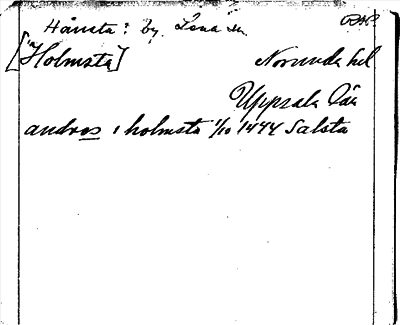 Hånsta: by. Lena sn.
[Holmsta] Norunda hd
Uppsala län
andros i holmsta 1/10 1444 Salsta